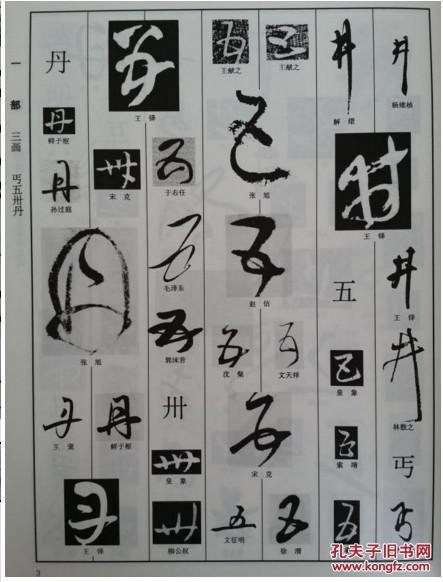 一部 三画 丐五卅丹
杨维桢
解缙
王铎
王铎
林散之
丐
五
皇象
索靖
王献之
王献之
张旭
赵佶
文天祥
沈粲
宋克
徐渭
文征明
于右任
毛泽东
郭沫若
卅
皇象
柳公权
王铎
宋克
丹
鲜于枢
孙过庭
张旭
王宠
鲜于枢
王铎
3
孔夫子旧书网
www.kongfz.com